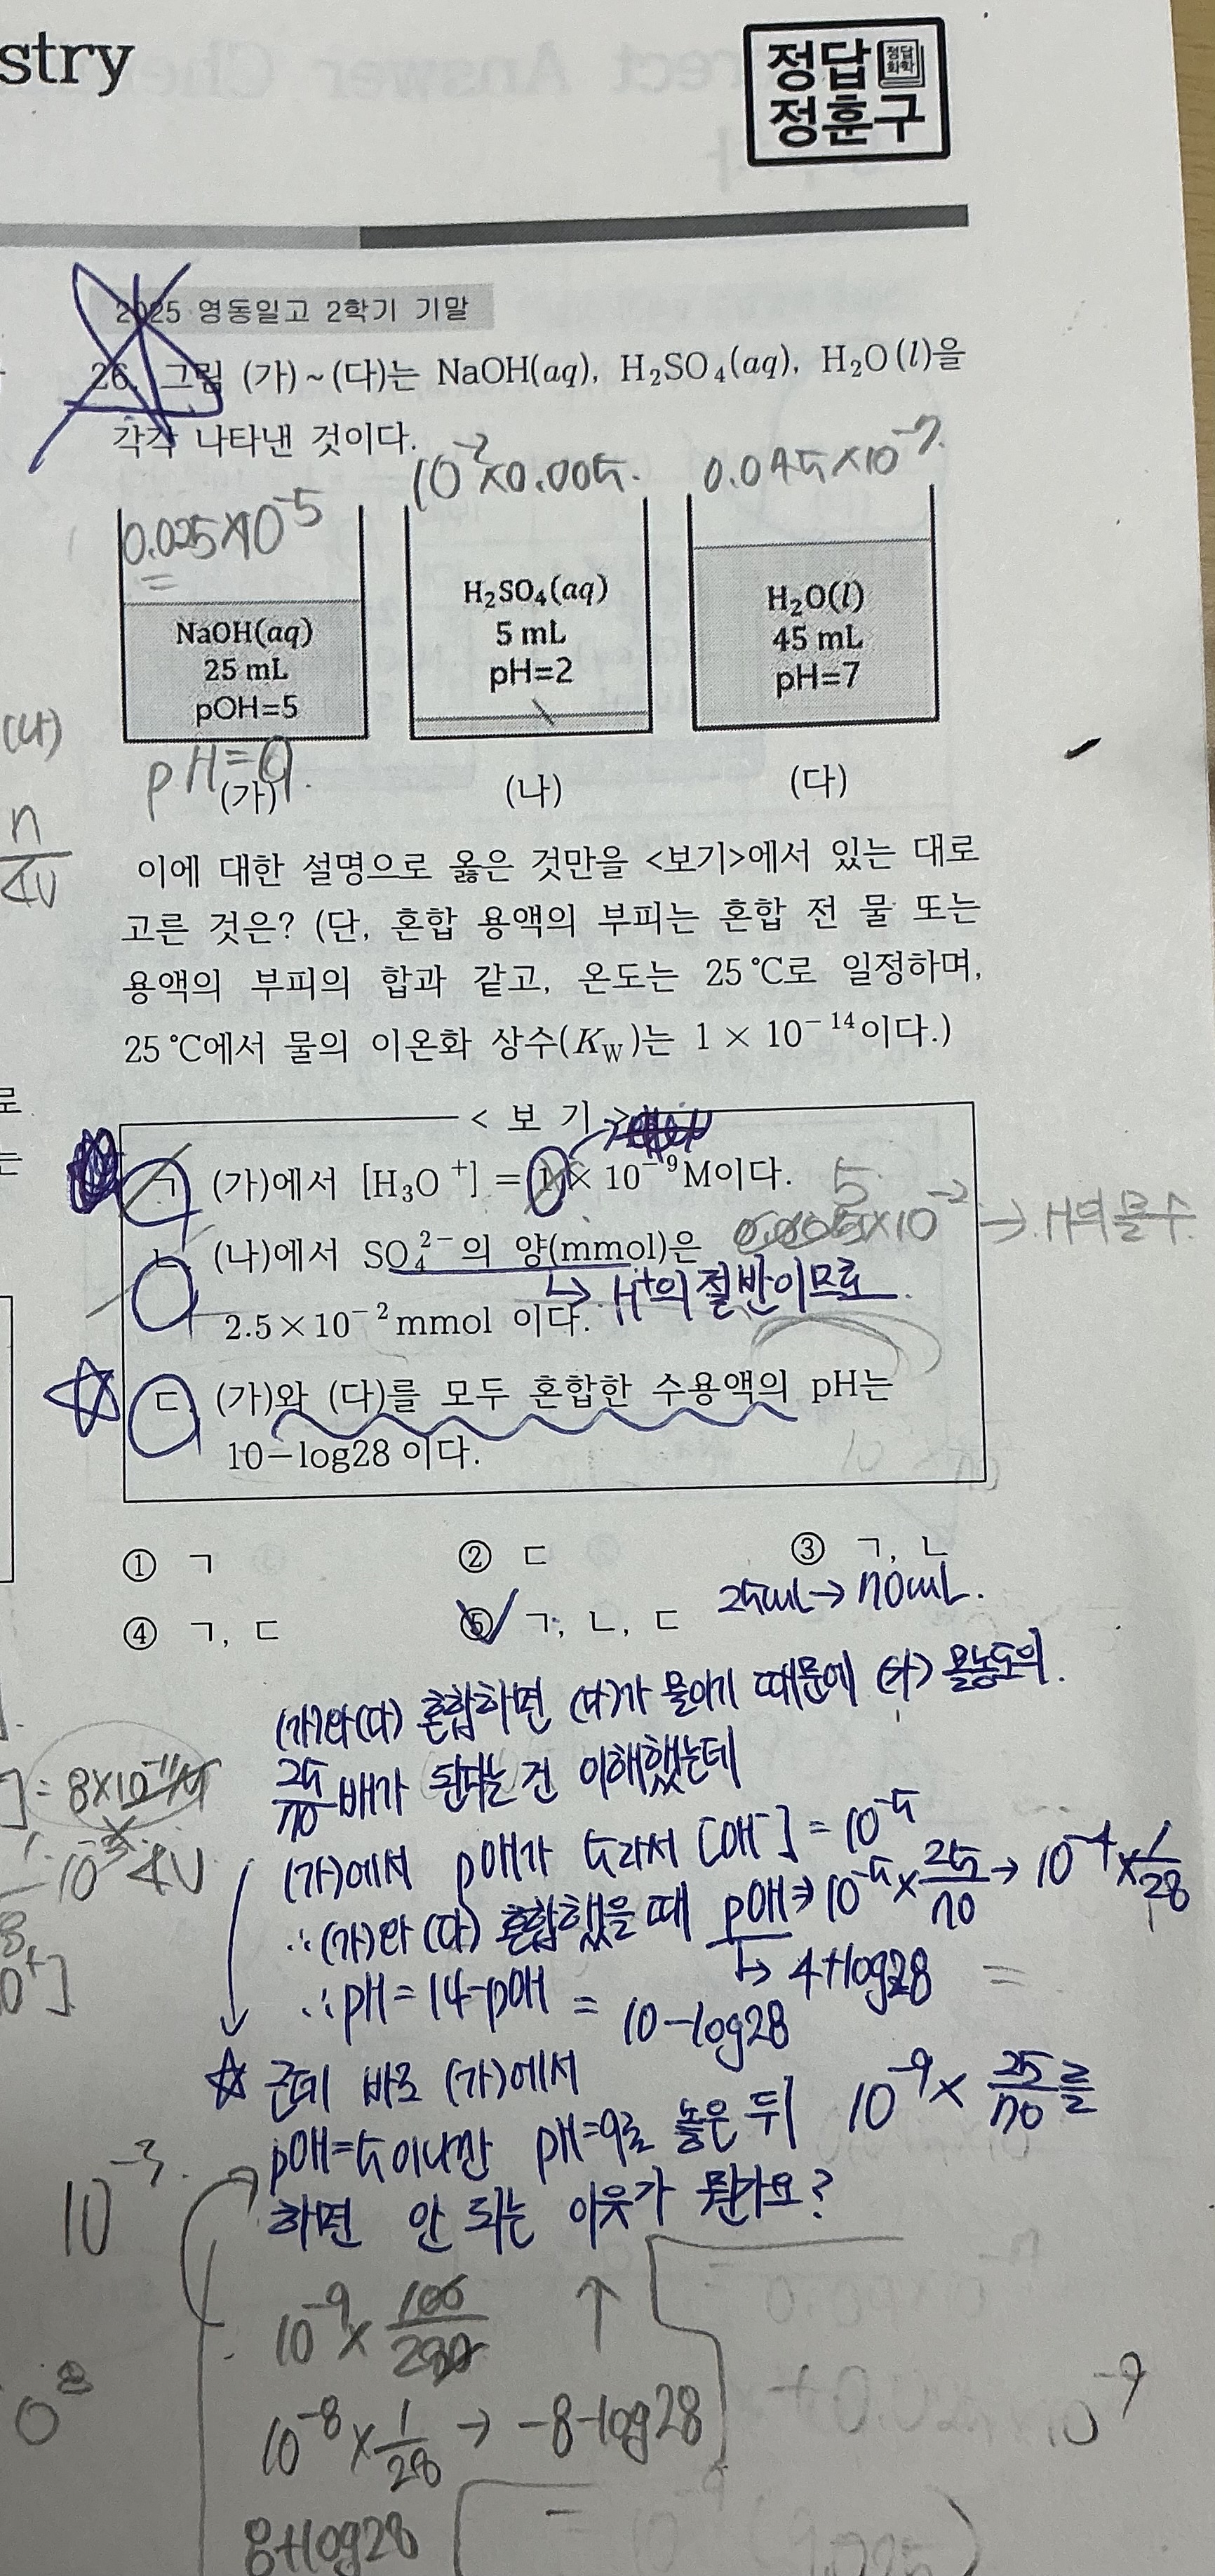 stry
정답
정답
화학
정훈구
2025 영동일고 2학기 기말
26. 그림 (가)~(다)는 NaOH(aq), H₂SO₄(aq), H₂O(l)을
각각 나타낸 것이다.
0.025×10⁻⁵
10⁻²×0.005.
0.045×10⁻⁷.
NaOH(aq)
25 mL
pOH=5
H₂SO₄(aq)
5 mL
pH=2
H₂O(l)
45 mL
pH=7
pH=9.
(가)
(나)
(다)
(나)
n
4V
이에 대한 설명으로 옳은 것만을 <보기>에서 있는 대로
고른 것은? (단, 혼합 용액의 부피는 혼합 전 물 또는
용액의 부피의 합과 같고, 온도는 25 ℃로 일정하며,
25 ℃에서 물의 이온화 상수(K_W)는 1 × 10⁻¹⁴이다.)
로
는
< 보 기 >
ㄱ (가)에서 [H₃O⁺] = 1 × 10⁻⁹ M이다.
5×10⁻² → H의 몰수
ㄴ (나)에서 SO₄²⁻의 양(mmol)은
2.5×10⁻² mmol 이다.
↳ H⁺의 절반이므로
ㄷ (가)와 (다)를 모두 혼합한 수용액의 pH는
10-log28 이다.
① ㄱ ② ㄷ ③ ㄱ, ㄴ
④ ㄱ, ㄷ ⑤ ㄱ, ㄴ, ㄷ
25mL → 70mL.
(가)와 (다) 혼합하면 (다)가 물이기 때문에 (가) 몰농도의.
25/70 배가 된다는 건 이해했는데
(가)에서 pOH가 5라서 [OH⁻] = 10⁻⁵
∴(가)와 (다) 혼합했을 때 pOH⇒10⁻⁵× 25/70 → 10⁻⁴× 1/28
↳ 4+log28 =
∴pH = 14-pOH = 10-log28
☆ 근데 바로 (가)에서
pOH=5이니깐 pH=9로 놓은 뒤 10⁻⁹× 25/70를
하면 안 되는 이유가 뭔가요?
] = 8×10⁻¹¹
4V
10⁻³.
10⁻⁹× 100/280
10⁻⁸× 1/28 → -8-log28
8+log28